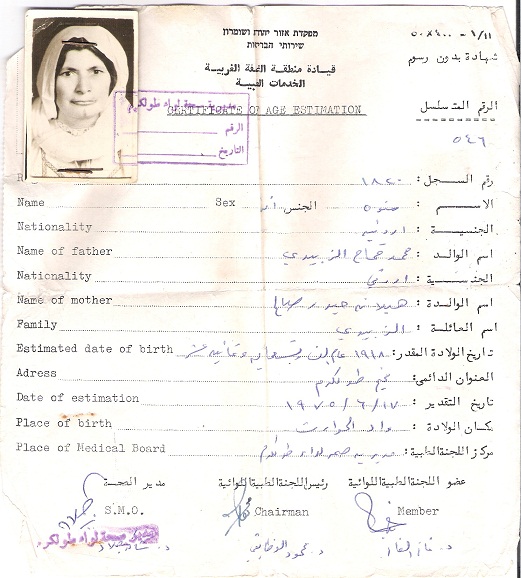 מפקדת אזור יהודה ושומרון
שירותי הבריאות
قيادة منطقة الضفة الغربية
الخدمات الطبية
CERTIFICATE OF AGE ESTIMATION
شهادة بدون رسوم
الرقم المتسلسل
٥٤٦
مديرية صحة لواء طولكرم
الرقم
التاريخ
رقم السجل: ١٨٢٠
Name Sex الجنس أنثى الاسم:
Nationality اردنية الجنسية:
Name of father محمد الزبيدي اسم الوالد:
Nationality اردني الجنسية:
Name of mother اسم الوالدة:
Family الزبيدي اسم العائلة:
Estimated date of birth ١٩١٨ تاريخ الولادة المقدر:
Adress مخيم طولكرم العنوان الدائمي:
Date of estimation ١٩٧٥/٦/١٧ تاريخ التقدير:
Place of birth واد الحوارث مكان الولادة:
Place of Medical Board مديرية صحة لواء طولكرم مركز اللجنة الطبية:
مدير الصحة رئيس اللجنة الطبية اللوائية عضو اللجنة الطبية اللوائية
S.M.O. Chairman Member
مدير صحة لواء طولكرم